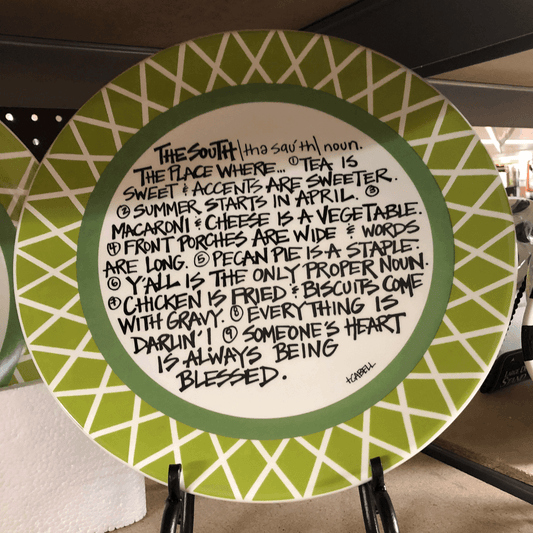 THE SOUTH |tha sau'th| noun.
THE PLACE WHERE... ① TEA IS
SWEET & ACCENTS ARE SWEETER.
② SUMMER STARTS IN APRIL. ③
MACARONI & CHEESE IS A VEGETABLE.
④ FRONT PORCHES ARE WIDE & WORDS
ARE LONG. ⑤ PECAN PIE IS A STAPLE.
⑥ Y'ALL IS THE ONLY PROPER NOUN.
⑦ CHICKEN IS FRIED & BISCUITS COME
WITH GRAVY. ⑧ EVERYTHING IS
DARLIN'! ⑨ SOMEONE'S HEART
IS ALWAYS BEING
BLESSED.
+CABELL